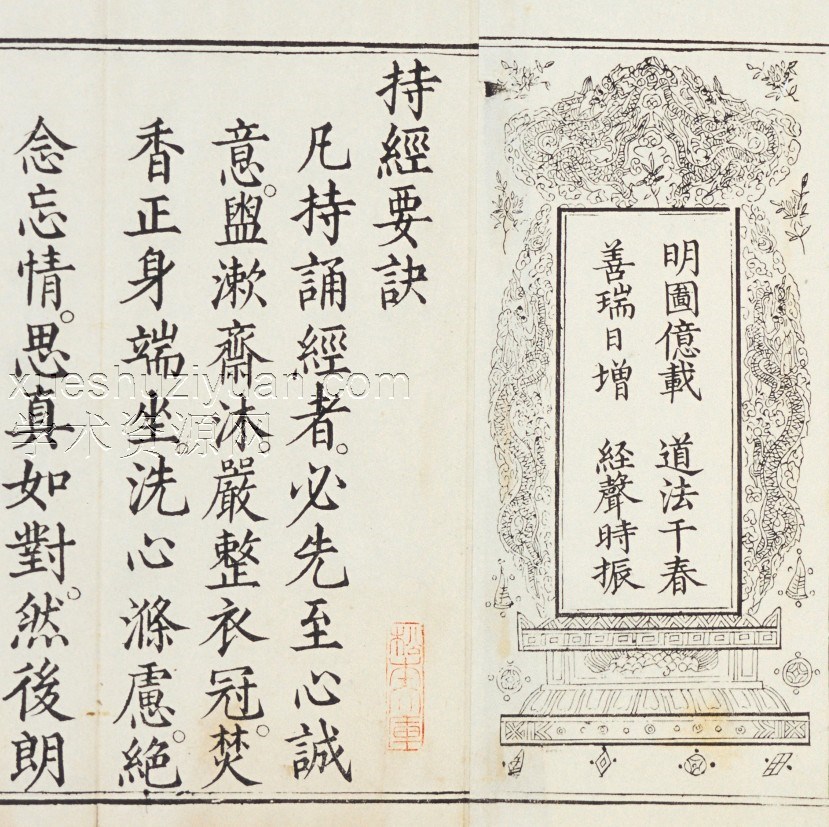 明圖億載 道法千春
善瑞日增 経聲時振
持經要訣
凡持誦經者。必先至心誠
意。盥漱齋沐。嚴整衣冠。焚
香正身端坐。洗心滌慮。絕
念忘情。思真如對。然後朗
xueshuziyuan.com
学术资源网